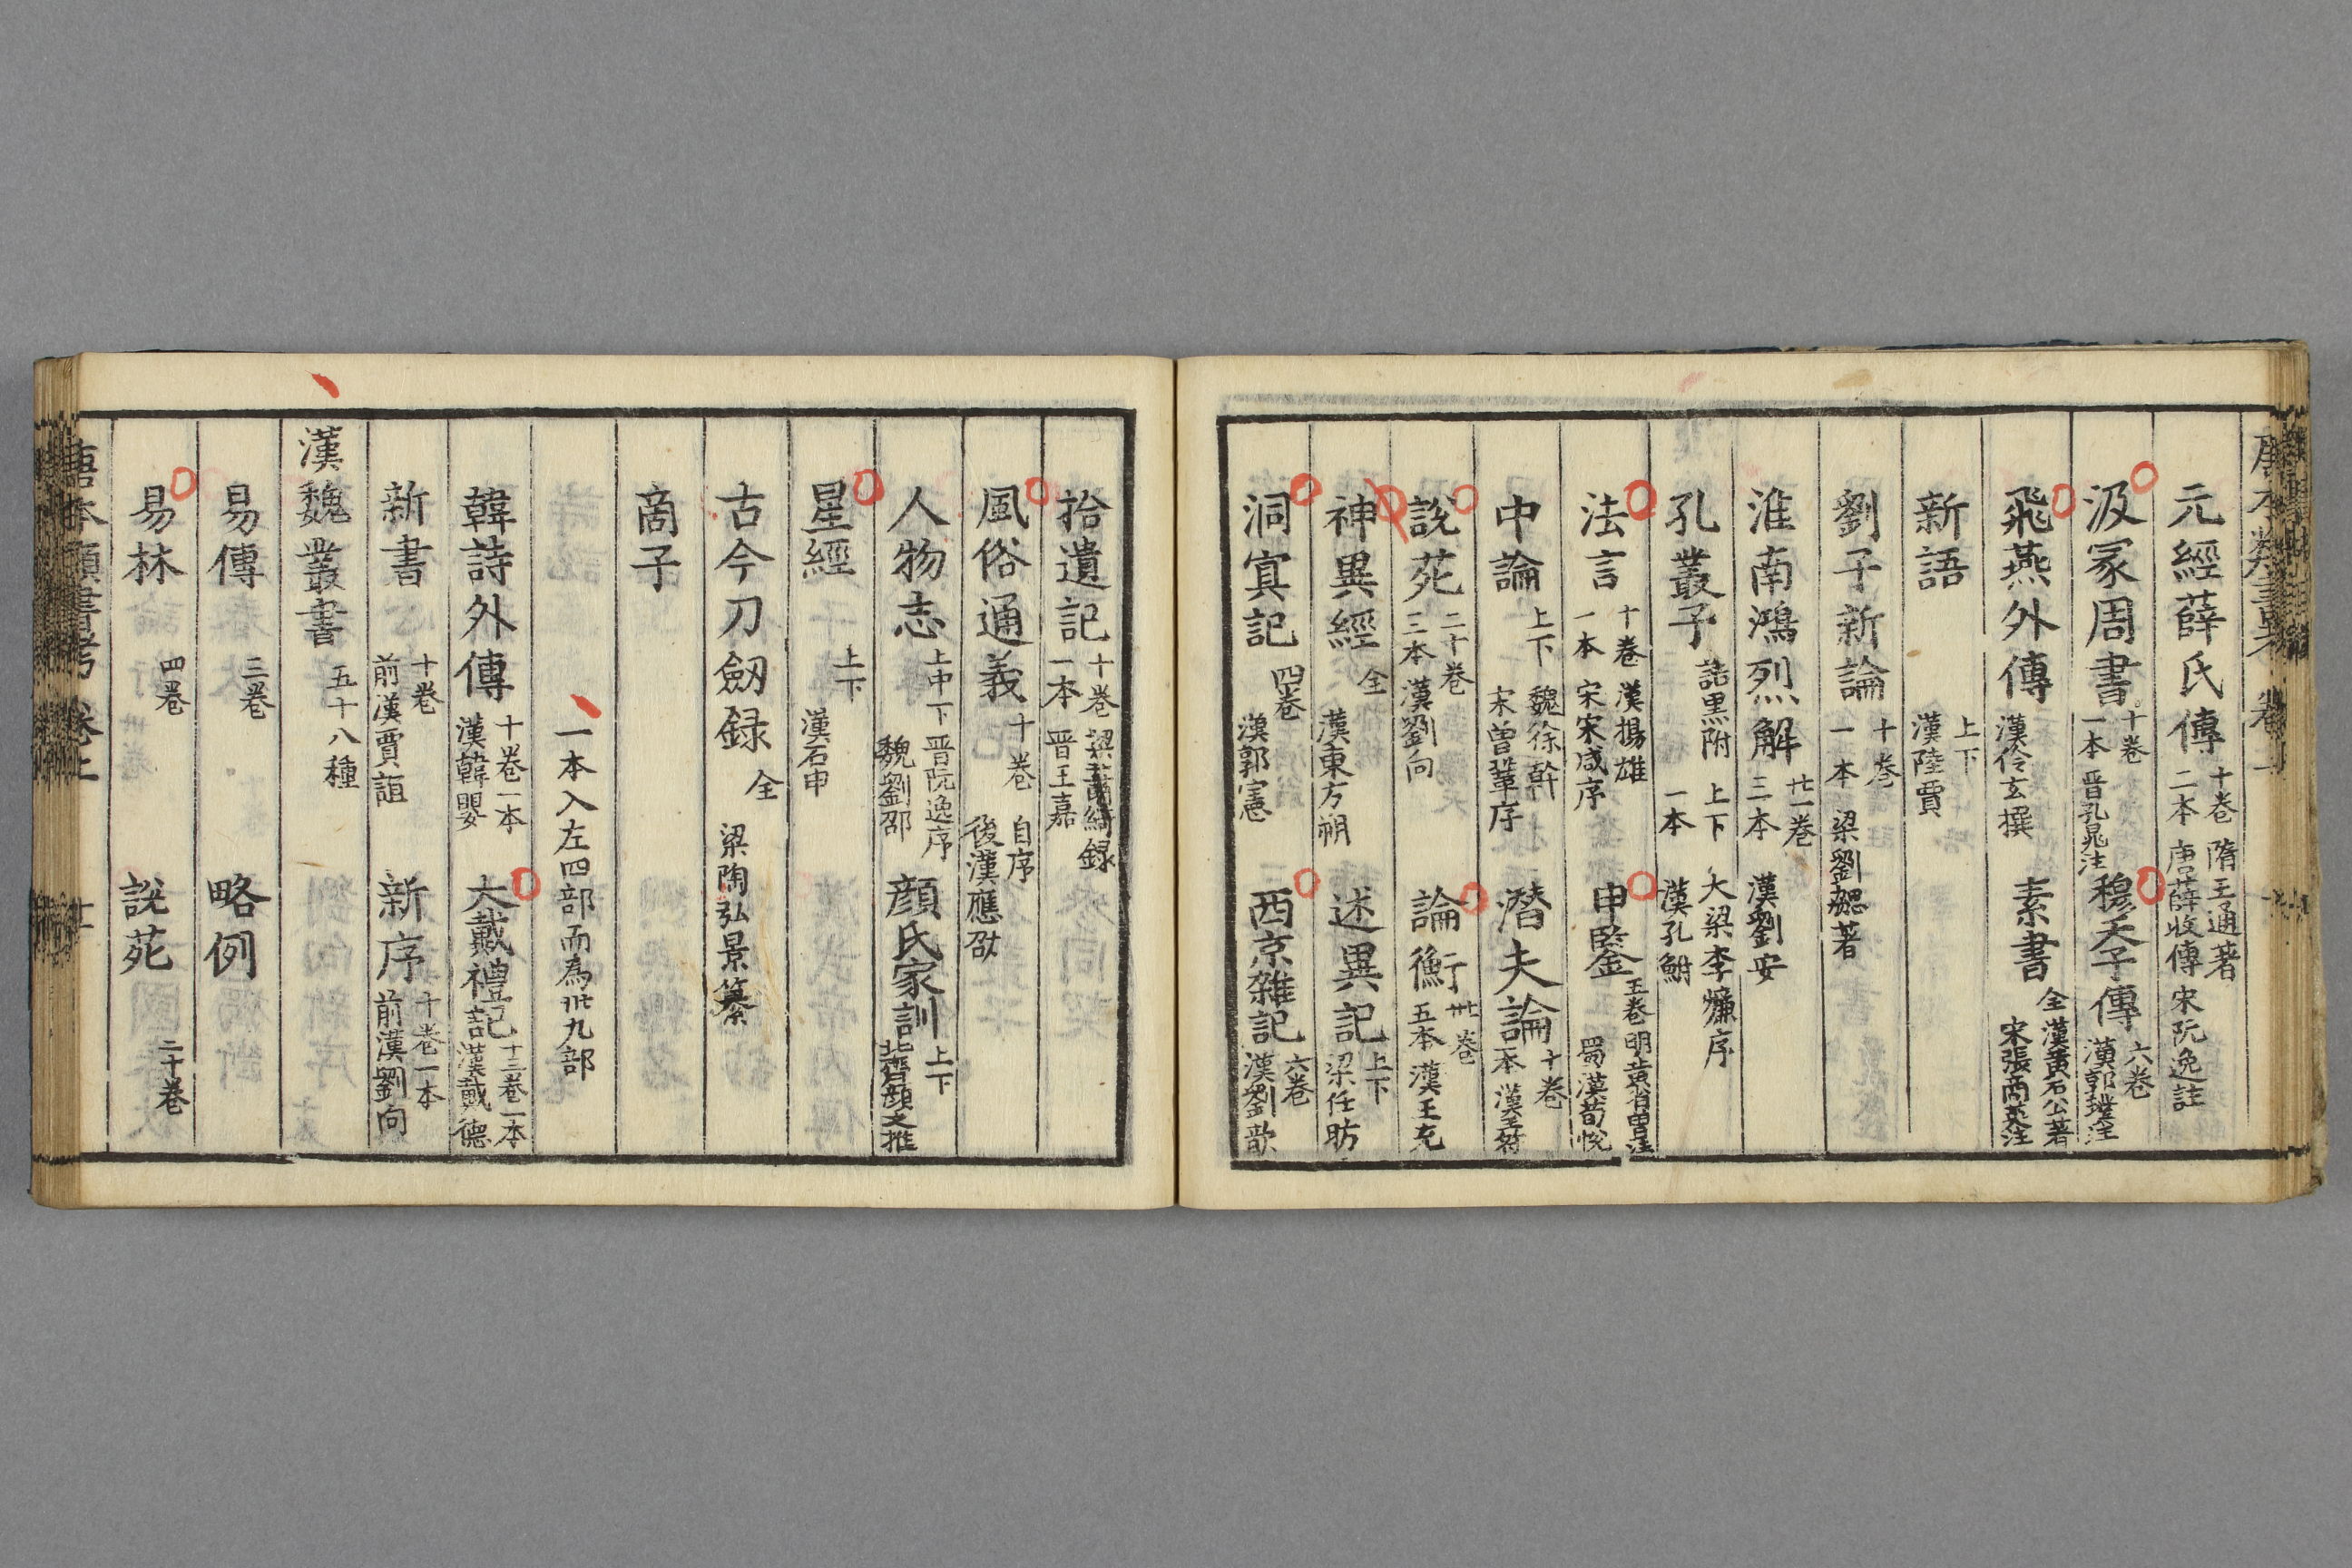 元經薛氏傳 十卷 二本 隋王通著 唐薛收傳 宋阮逸註
汲冢周書 十卷 一本 晋孔晁注 穆天子傳 六卷 漢郭璞注
飛燕外傳 漢伶玄撰 素書 全 漢黃石公著 宋張商英注
新語 上下 漢陸賈
劉子新論 十卷 一本 梁劉勰著
淮南鴻烈解 廿一卷 三本 漢劉安
孔叢子 詰黑附 上下 一本 大梁李㷆序 漢孔鮒
法言 十卷 一本 漢揚雄 宋宋咸序 申鑒 五卷 明黃省曽注 蜀漢荀悅
中論 上下 魏徐幹 宋曽鞏序 潛夫論 十卷 一本 漢王符
說苑 二十卷 三本 漢劉向 論衡 卅卷 五本 漢王充
神異經 全 漢東方朔 述異記 上下 梁任昉
洞冥記 四卷 漢郭憲 西京雜記 六卷 漢劉歆
拾遺記 十卷 一本 梁蕭綺録 晋王嘉
風俗通義 十卷 自序 後漢應劭
人物志 上中下 晋阮逸序 魏劉邵 顔氏家訓 上下 北齊顔之推
星經 上下 漢石申
古今刀劔録 全 梁陶弘景纂
商子
一本入左四部而為卅九部
韓詩外傳 十卷一本 漢韓嬰 大戴禮記 十三卷一本 漢戴德
新書 十卷 前漢賈誼 新序 十卷一本 前漢劉向
漢魏叢書 五十八種
易傳 三卷 略例
易林 四卷 說苑 二十卷
唐本類書考 卷上 十一